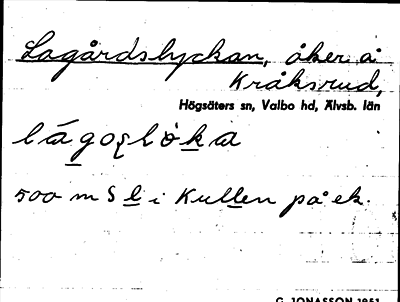 Lagårdslyckan, åker å
Kråksrud,
Högsäters sn, Valbo hd, Älvsb. län
500 m S l i Kullen på ek.
G. JONASSON 1951